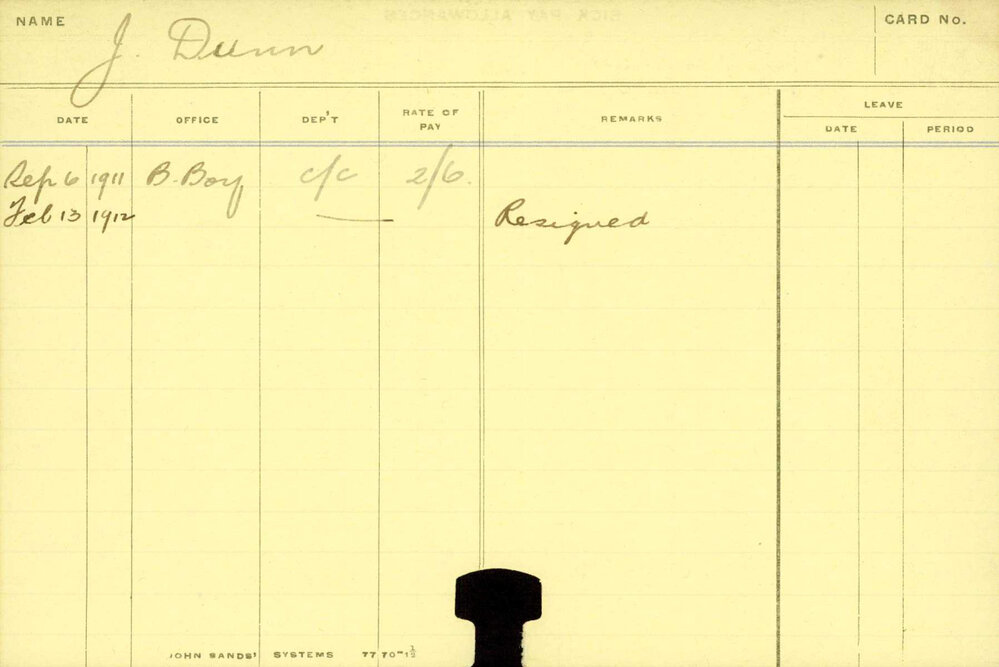 NAME J. Dunn CARD No.
LEAVE
DATE OFFICE DEP'T RATE OF PAY REMARKS DATE PERIOD
Sep 6 1911 B. Boy c/c 2/6.
Feb 13 1912 Resigned
JOHN SANDS' SYSTEMS 77 70-1½